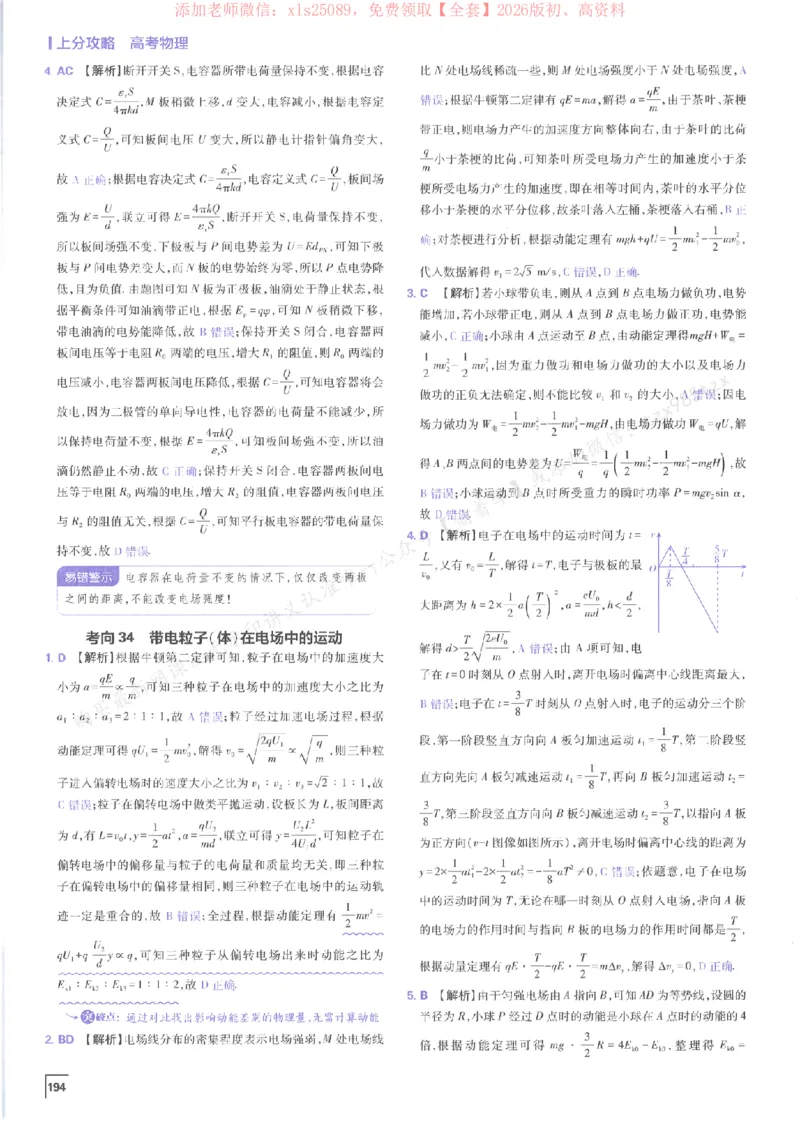 添加老师微信：xls25089，免费领取【全套】2026版初、高资料
上分攻略 高考物理
4. AC 【解析】断开开关S,电容器所带电荷量保持不变,根据电容
决定式 C=εrS/4πkd,M 板稍微上移,d 变大,电容减小,根据电容定
义式 C=Q/U,可知板间电压 U 变大,所以静电计指针偏角变大,
故 A 正确;根据电容决定式 C=εrS/4πkd,电容定义式 C=Q/U,板间场
强为 E=U/d,联立可得 E=4πkQ/εrS,断开开关 S,电荷量保持不变,
所以板间场强不变,下极板与 P 间电势差为 U=Ed_PN,可知下极
板与 P 间电势差变大,而 N 板的电势始终为零,所以 P 点电势降
低,且为负值.由题图可知 N 板为正极板,油滴处于静止状态,根
据平衡条件可知油滴带正电,根据 Ep=qφ,可知 N 板稍微下移,
带电油滴的电势能降低,故 B 错误;保持开关 S 闭合,电容器两
板间电压等于电阻 R₀ 两端的电压,增大 R₁ 的阻值,则 R₀ 两端的
电压减小,电容器两板间电压降低,根据 C=Q/U,可知电容器将会
放电,因为二极管的单向导电性,电容器的电荷量不能减少,所
以保持电荷量不变,根据 E=4πkQ/εrS,可知板间场强不变,所以油
滴仍然静止不动,故 C 正确;保持开关 S 闭合,电容器两板间电
压等于电阻 R₀ 两端的电压,增大 R₂ 的阻值,电容器两板间电压
与 R₂ 的阻值无关,根据 C=Q/U,可知平行板电容器的带电荷量保
持不变,故 D 错误.
易错警示 电容器在电荷量不变的情况下,仅仅改变两板
之间的距离,不能改变电场强度!
考向 34 带电粒子(体)在电场中的运动
1. D 【解析】根据牛顿第二定律可知,粒子在电场中的加速度大
小为 a=qE/m∝q/m,可知三种粒子在电场中的加速度大小之比为
a₁:a₂:a₃=2:1:1,故 A 错误;粒子经过加速电场过程,根据
动能定理可得 qU₁=1/2 mv₀²,解得 v₀=√(2qU₁/m)∝√(q/m),则三种粒
子进入偏转电场时的速度大小之比为 v₁:v₂:v₃=√2:1:1,故
C 错误;粒子在偏转电场中做类平抛运动,设板长为 L,板间距离
为 d,有 L=v₀t,y=1/2 at²,a=qU₂/md,联立可得 y=U₂L²/4U₁d,可知粒子在
偏转电场中的偏移量与粒子的电荷量和质量均无关,即三种粒
子在偏转电场中的偏移量相同,则三种粒子在电场中的运动轨
迹一定是重合的,故 B 错误;全过程,根据动能定理有 1/2 mv²=
qU₁+q U₂/d y∝q,可知三种粒子从偏转电场出来时动能之比为
Ek1:Ek2:Ek3=1:1:2,故 D 正确.
突破点:通过对比找出影响动能差别的物理量,无需计算动能
2. BD 【解析】电场线分布的密集程度表示电场强弱,M 处电场线
比 N 处电场线稀疏一些,则 M 处电场强度小于 N 处电场强度,A
错误;根据牛顿第二定律有 qE=ma,解得 a=qE/m,由于茶叶、茶梗
带正电,则电场力产生的加速度方向整体向右,由于茶叶的比荷
q/m小于茶梗的比荷,可知茶叶所受电场力产生的加速度小于茶
梗所受电场力产生的加速度,即在相等时间内,茶叶的水平分位
移小于茶梗的水平分位移,故茶叶落入左桶,茶梗落入右桶,B 正
确;对茶梗进行分析,根据动能定理有 mgh+qU=1/2 mv₁²-1/2 mv₀²,
代入数据解得 v₁=2√5 m/s,C 错误,D 正确.
3. C 【解析】若小球带负电,则从 A 点到 B 点电场力做负功,电势
能增加,若小球带正电,则从 A 点到 B 点电场力做正功,电势能
减小,C 正确;小球由 A 点运动至 B 点,由动能定理得mgH+W电=
1/2 mv₂²-1/2 mv₁²,因为重力做功和电场力做功的大小以及电场力
做功的正负无法确定,则不能比较 v₁ 和 v₂ 的大小,A 错误;因电
场力做功为 W电=1/2 mv₂²-1/2 mv₁²-mgH,由电场力做功 W电=qU,解
得 A、B 两点间的电势差为 U=W电/q=1/q(1/2 mv₂²-1/2 mv₁²-mgH),故
B 错误;小球运动到 B 点时所受重力的瞬时功率 P=mgv₂sin α,
故 D 错误.
4. D 【解析】电子在电场中的运动时间为 t=
L/v₀,又有 v₀=L/T,解得 t=T,电子与极板的最
大距离为 h=2×1/2 a(T/2)²,a=eU₀/md,h<d/2,
解得 d>T/2 √(2eU₀/m),A 错误;由 A 项可知,电
v
O
T/8
T/4
5/8 T
t
了在 t=0 时刻从 O 点射入时,离开电场时偏离中心线距离最大,
B 错误;电子在 t=3/8 T 时刻从 O 点射入时,电子的运动分三个阶
段,第一阶段竖直方向向 A 板匀加速运动 t₁=1/8 T,第二阶段竖
直方向先向 A 板匀减速运动 t₁=1/8 T,再向 B 板匀加速运动 t₂=
3/8 T,第三阶段竖直方向向 B 板匀减速运动 t₂=3/8 T,以指向 A 板
为正方向(v-t 图像如图所示),离开电场时偏离中心线的距离为
y=2×1/2 at₁²-2×1/2 at₂²=-1/8 aT²≠0,C 错误;依题意,电子在电场
中的运动时间为 T,无论在哪一时刻从 O 点射入电场,指向 A 板
的电场力的作用时间与指向 B 板的电场力的作用时间都是T/2,
根据动量定理有 qE·T/2-qE·T/2=mΔvy,解得 Δvy=0,D 正确.
5. B 【解析】由于匀强电场由 A 指向 B,可知 AD 为等势线,设圆的
半径为 R,小球 P 经过 D 点时的动能是小球在 A 点时的动能的 4
倍,根据动能定理可得 mg·3/2 R=4Ek0-Ek0,整理得 Ek0=
194